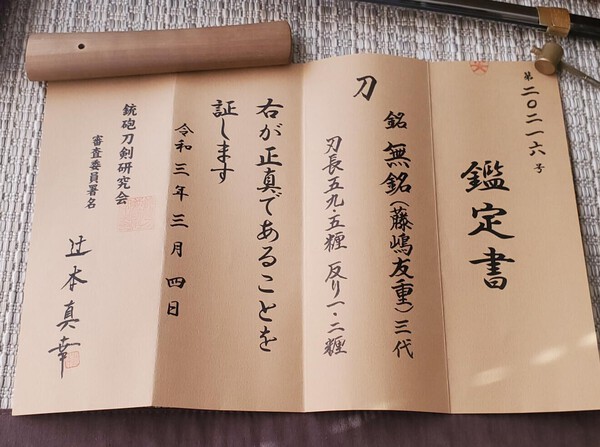 第二〇二一六号
鑑定書
刀
銘 無銘(藤嶋友重)三代
刃長五九・五糎 反り一・二糎
右が正真であることを
証します
令和三年三月四日
銃砲刀剣研究会
審査委員署名
辻本真幸